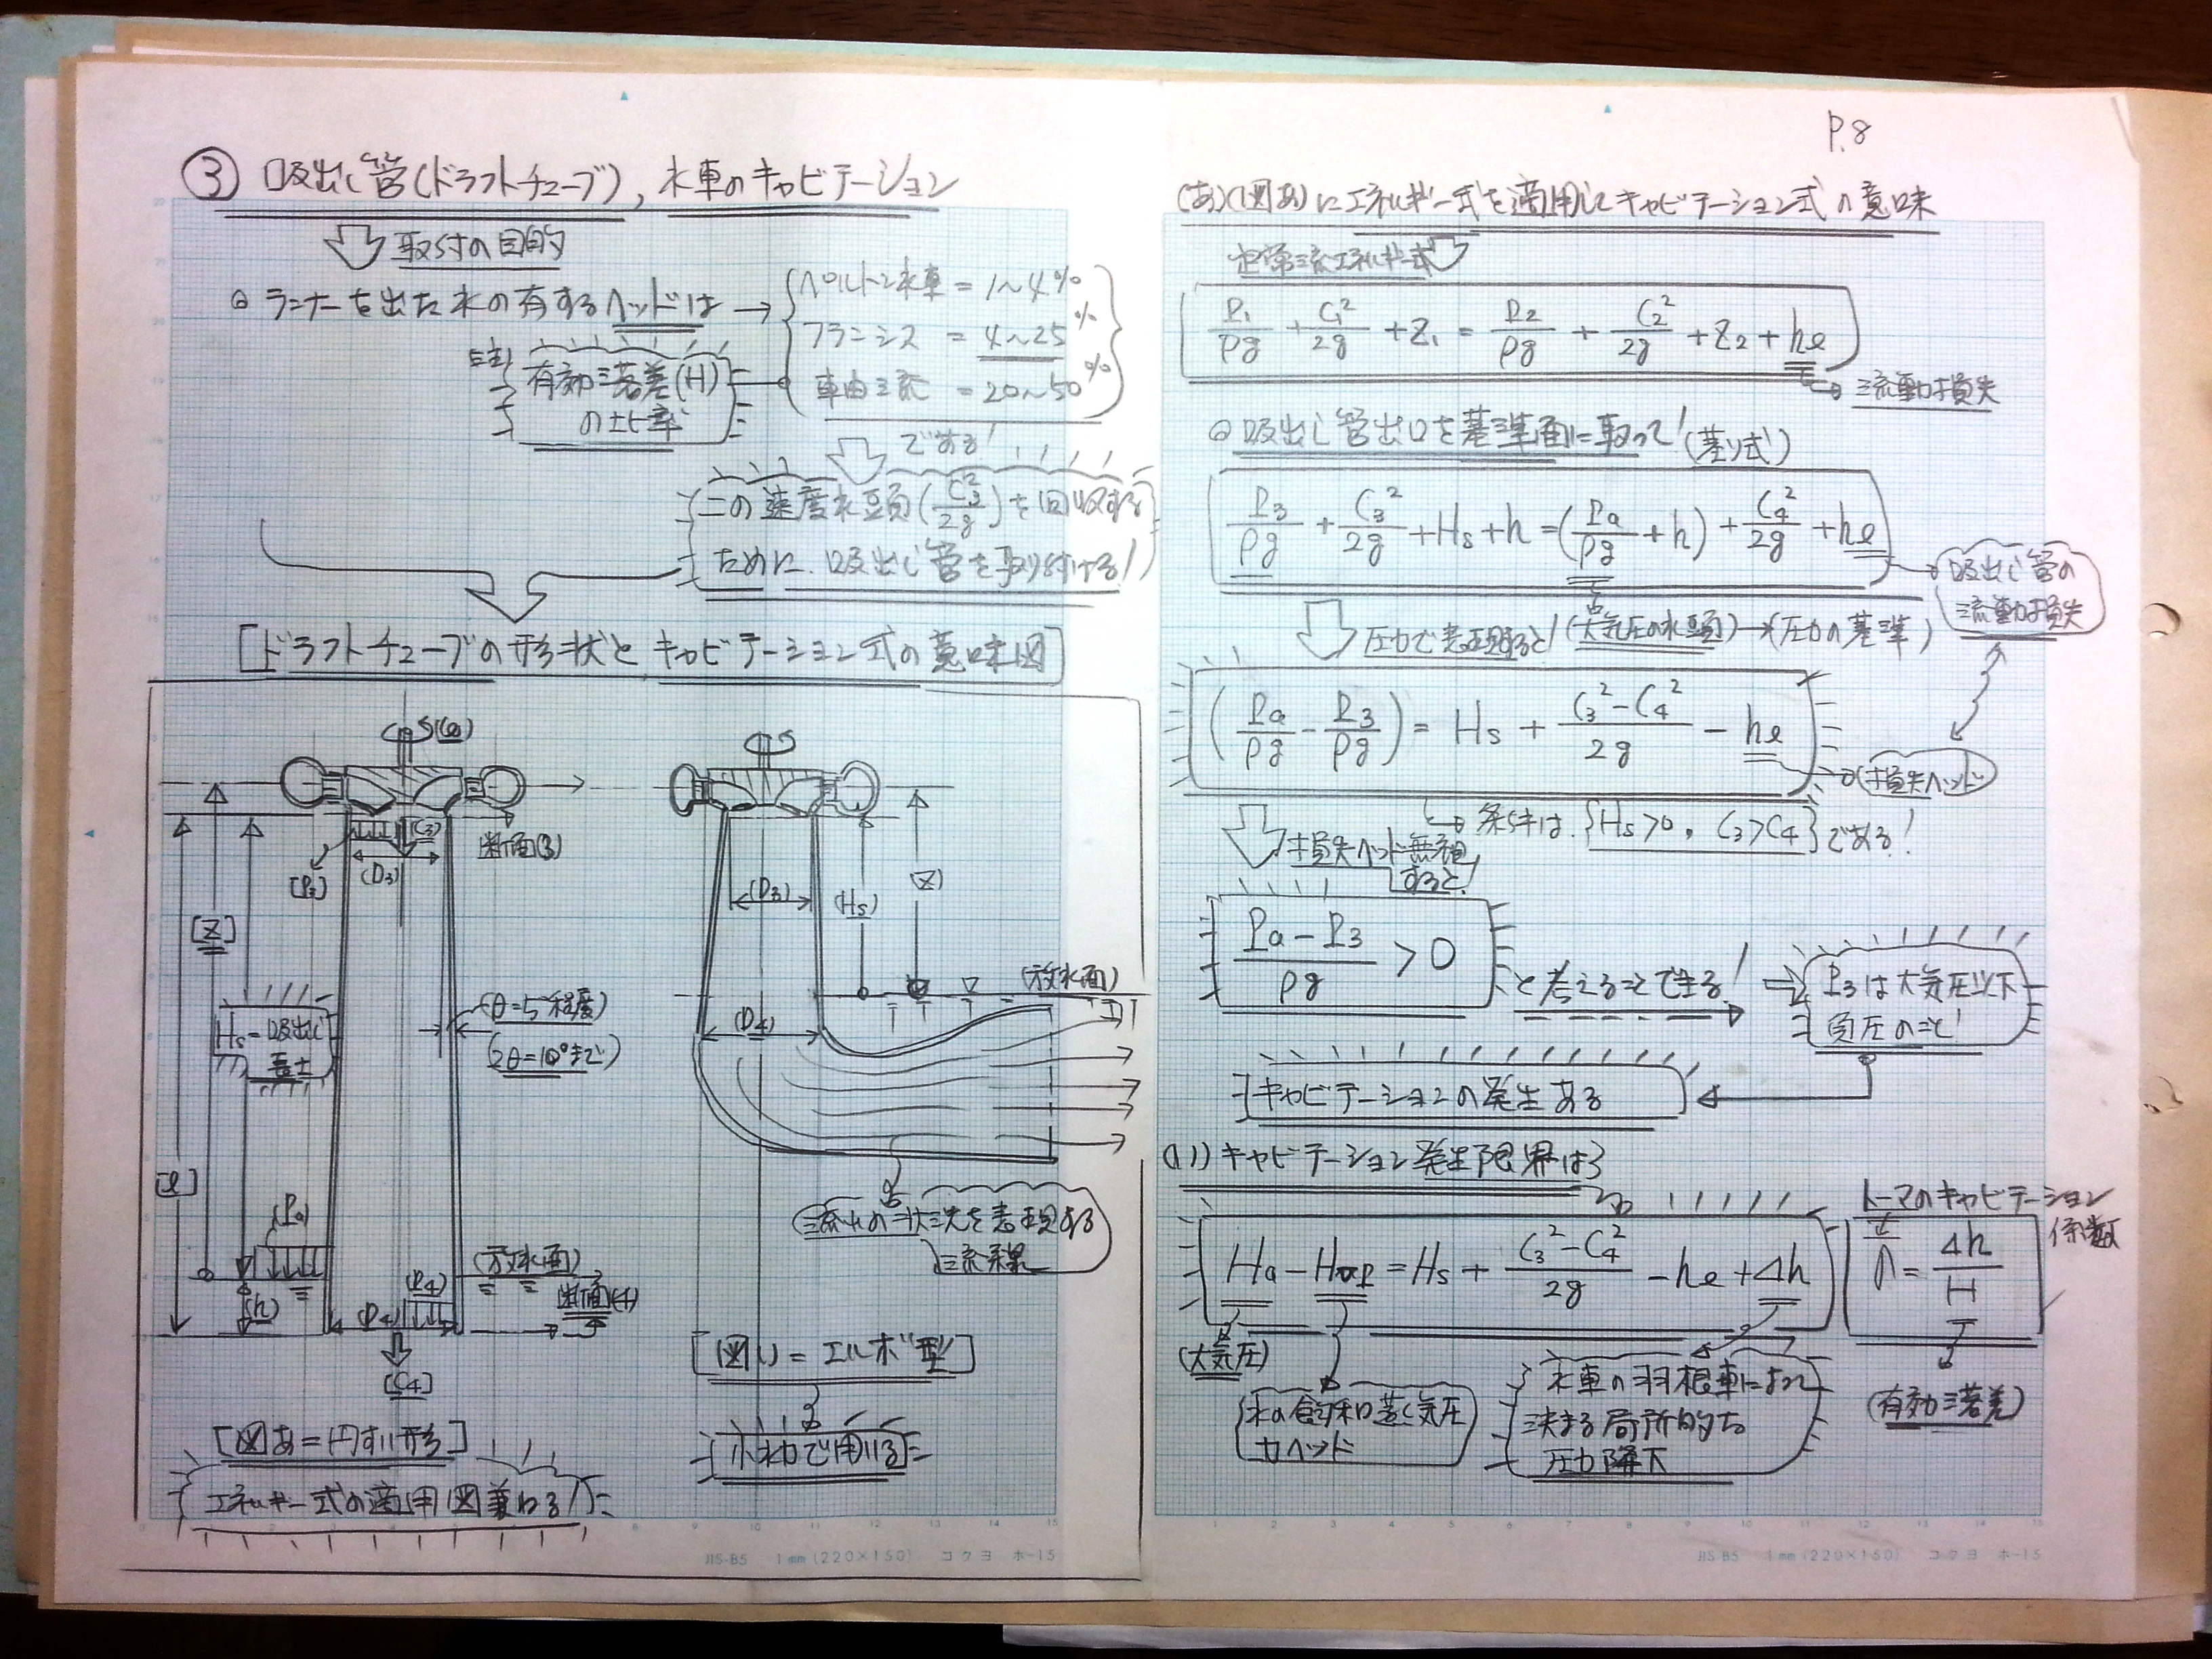 P.8
③ 吸出し管(ドラフトチューブ), 水車のキャビテーション
取付の目的
◎ ランナーを出た水の有するヘッドは →
ペルトン水車 = 1〜4%
フランシス = 4〜25%
軸流 = 20〜50%
注)
有効落差(H)
の比率
である!
この速度水頭(C₃²/2g)を回収する
ために、吸出し管を取り付ける!
[ドラフトチューブの形状とキャビテーション式の意味図]
(C₃)
断面(3)
[P₃]
(D₃)
[Z]
Hs=吸出し
高さ
(θ=5°程度)
(2θ=10°まで)
[l]
(Pa)
(h)
(放水面)
(P₄)
(D₄)
断面(4)
[C₄]
[図あ=円すい形]
エネルギー式の適用図兼ねる!
(D₃)
(Hs)
(Z)
(放水面)
(D₄)
流れの状況を表現する
流線
[図い=エルボ型]
小水力で用いる
(あ)(図あ)にエネルギー式を適用してキャビテーション式の意味
定常流エネルギー式
P₁/ρg + C₁²/2g + Z₁ = P₂/ρg + C₂²/2g + Z₂ + he
流動損失
◎ 吸出し管出口を基準面に取って!(基い式)
P₃/ρg + C₃²/2g + Hs + h = (Pa/ρg + h) + C₄²/2g + he
吸出し管の
流動損失
圧力で表現すると! (大気圧の水頭)→(圧力の基準)
(Pa/ρg - P₃/ρg) = Hs + (C₃²-C₄²)/2g - he
(損失ヘッド)
条件は、{Hs>0, C₃>C₄}である!
損失ヘッド無視
すると!
(Pa - P₃)/ρg > 0
と考えることできる!
P₃は大気圧以下
負圧のこと!
キャビテーションの発生ある
(い) キャビテーション発生限界は
Ha - Hvp = Hs + (C₃²-C₄²)/2g - he + Δh
トーマのキャビテーション
係数
σ = Δh/H
(大気圧)
水の飽和蒸気圧
力ヘッド
水車の羽根車によって
決まる局所的な
圧力降下
(有効落差)
JIS-B5 1mm(220×150) コクヨ ホ-15
JIS-B5 1mm(220×150) コクヨ ホ-15